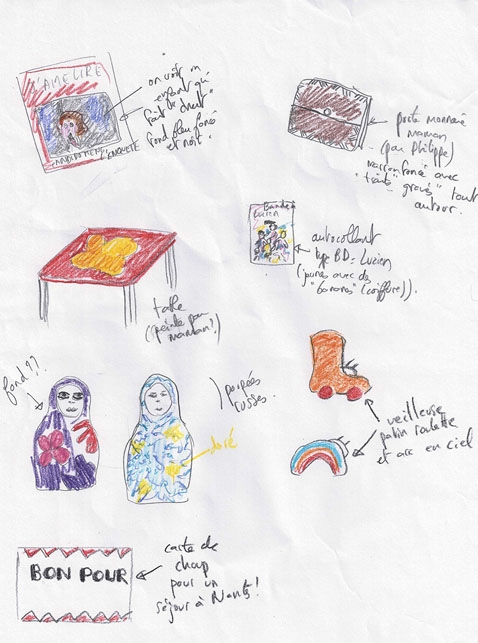 J'AIME LIRE
L'ENQUÊTE
on voit un
enfant qui
fait "de chut"
fond bleu foncé
et noir
porte monnaie
maman
(par Philippe)
marron foncé avec
"traits gravés" tout
autour.
Bande à
Lucien
autocollant
type BD: Lucien
(jeunes avec des
"bananes" (coiffure)).
table
(peinte par
maman?)
fond??
poupées
russes.
doré
veilleuse
patin roulette
et arc en ciel
BON POUR
carte de
chap
pour un
séjour à Nants!